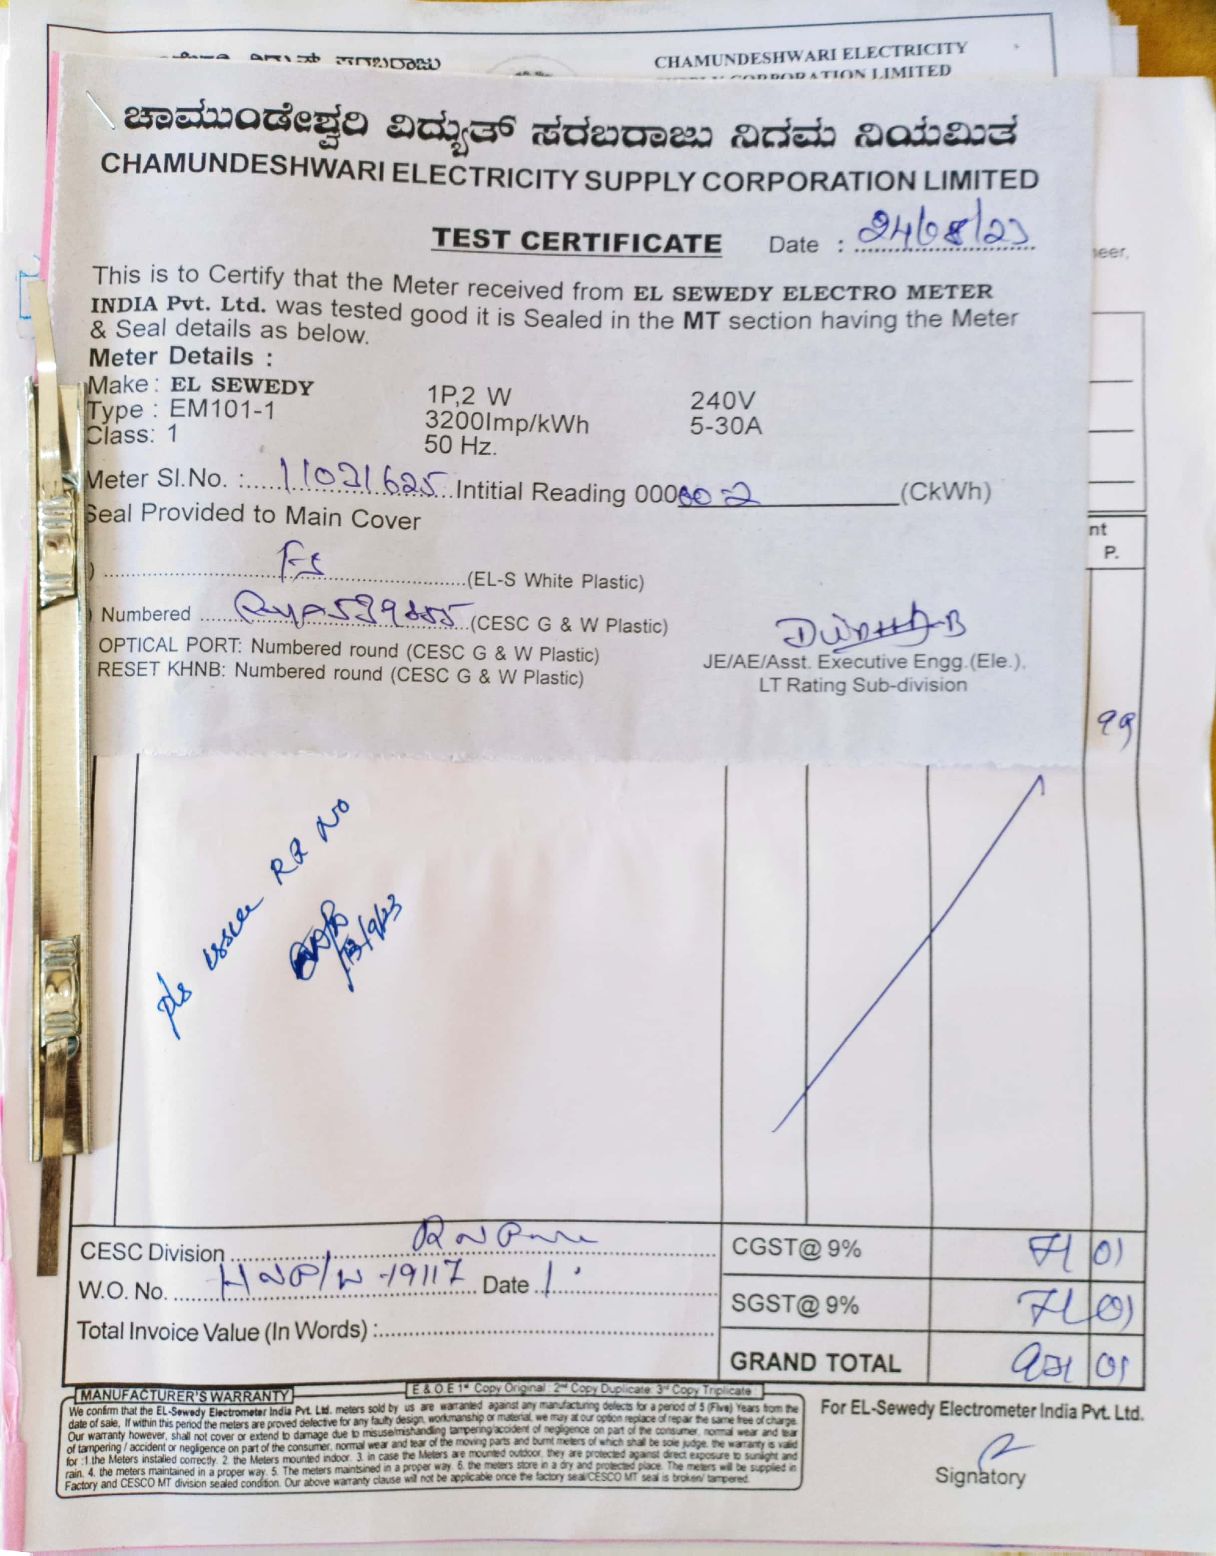 CHAMUNDESHWARI ELECTRICITY
ಚಾಮುಂಡೇಶ್ವರಿ ವಿದ್ಯುತ್ ಸರಬರಾಜು ನಿಗಮ ನಿಯಮಿತ
CHAMUNDESHWARI ELECTRICITY SUPPLY CORPORATION LIMITED
TEST CERTIFICATE Date : 24/08/23
This is to Certify that the Meter received from EL SEWEDY ELECTRO METER
INDIA Pvt. Ltd. was tested good it is Sealed in the MT section having the Meter
& Seal details as below.
Meter Details :
Make : EL SEWEDY 1P,2 W 240V
Type : EM101-1 3200Imp/kWh 5-30A
Class: 1 50 Hz.
Meter Sl.No. : 11021625 Intitial Reading 000 (CkWh)
Seal Provided to Main Cover
(EL-S White Plastic)
Numbered (CESC G & W Plastic)
OPTICAL PORT: Numbered round (CESC G & W Plastic)
RESET KHNB: Numbered round (CESC G & W Plastic)
JE/AE/Asst. Executive Engg.(Ele.).
LT Rating Sub-division
P.
99
pls issue RR No
13/9/23
CESC Division
W.O. No. HNP/W-19117 Date
Total Invoice Value (In Words) :
CGST@ 9% 71 01
SGST@ 9% 71 01
GRAND TOTAL 931 01
E & O.E 1st Copy Original : 2nd Copy Duplicate: 3rd Copy Triplicate
MANUFACTURER'S WARRANTY
We confirm that the EL-Sewedy Electrometer India Pvt. Ltd. meters sold by us are warranted against any manufacturing defects for a period of 5 (Five) Years from the
date of sale, If within this period the meters are proved defective for any faulty design, workmanship or material, we may at our option replace of repair the same free of charge.
Our warranty however, shall not cover or extend to damage due to misuse/mishandling tampering/accident of negligence on part of the consumer, normal wear and tear
of tampering / accident or negligence on part of the consumer, normal wear and tear of the moving parts and burnt meters of which shall be sole judge. the warranty is valid
for :1.the Meters installed correctly. 2. the Meters mounted indoor. 3. in case the Meters are mounted outdoor, they are protected against direct exposure to sunlight and
rain. 4. the meters maintained in a proper way. 5. The meters maintsined in a proper way. 6. the meters store in a dry and protected place. The meters will be supplied in
Factory and CESCO MT division sealed condition. Our above warranty clause will not be applicable once the factory seal/CESCO MT seal is broken/ tampered.
For EL-Sewedy Electrometer India Pvt. Ltd.
Signatory